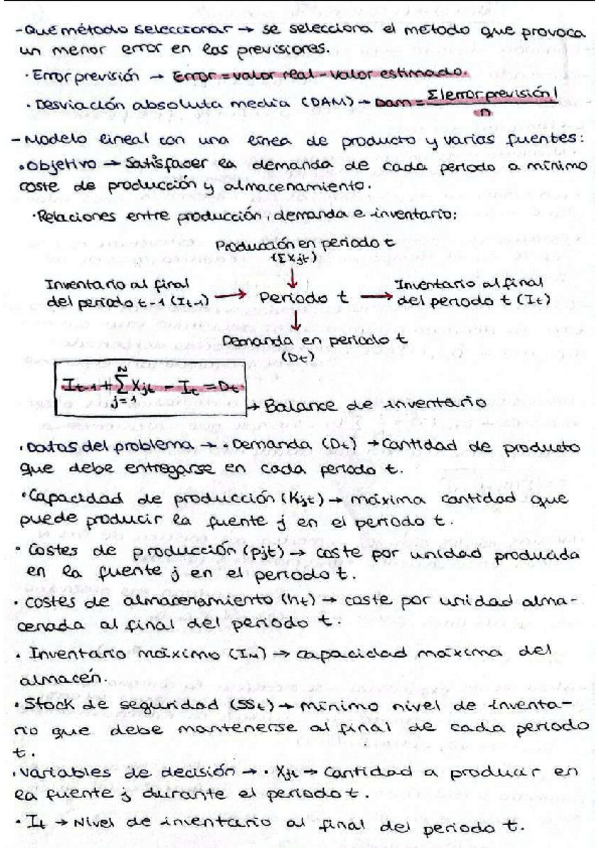 - Qué método seleccionar → se selecciona el método que provoca
un menor error en las previsiones.
· Error previsión → Error = valor real - valor estimado.
· Desviación absoluta media (DAM) → Dam = Σ|error previsión| / n
- Modelo lineal con una línea de producto y varias fuentes:
• Objetivo → Satisfacer la demanda de cada periodo a mínimo
coste de producción y almacenamiento.
· Relaciones entre producción, demanda e inventario:
Producción en periodo t
(ΣXjt)
Inventario al final del periodo t-1 (It-1) → Periodo t → Inventario al final del periodo t (It)
Demanda en periodo t
(Dt)
It-1 + Σ(j=1, N) Xjt - It = Dt → Balance de inventario
· Datos del problema → · Demanda (Dt) → Cantidad de producto
que debe entregarse en cada periodo t.
• Capacidad de producción (Kjt) → máxima cantidad que
puede producir la fuente j en el periodo t.
· Costes de producción (pjt) → coste por unidad producida
en la fuente j en el periodo t.
· Costes de almacenamiento (ht) → coste por unidad alma-
cenada al final del periodo t.
· Inventario máximo (IM) → capacidad máxima del
almacén.
· Stock de seguridad (SSt) → mínimo nivel de inventa-
rio que debe mantenerse al final de cada periodo
t.
· Variables de decisión → · Xjt → Cantidad a producir en
la fuente j durante el periodo t.
· It → Nivel de inventario al final del periodo t.